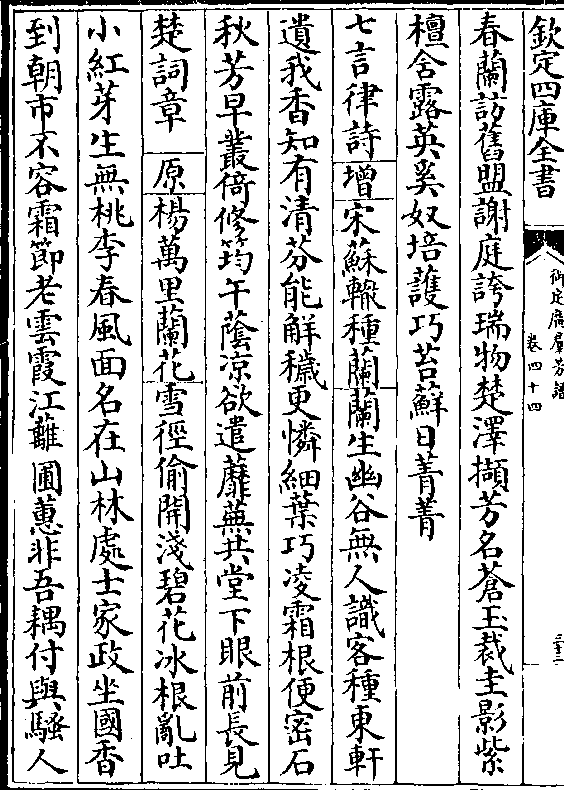 欽定四庫全書
御定廣羣芳譜
卷四十四
三十二
春蘭訪舊盟謝庭誇瑞物楚澤擷芳名蒼玉裁圭影紫
檀含露英奚奴培護巧苔蘚日菁菁
七言律詩增宋蘇轍種蘭蘭生幽谷無人識客種東軒
遺我香知有清芬能解穢更憐細葉巧凌霜根便密石
秋芳早叢倚修筠午蔭凉欲遣蘼蕪共堂下眼前長見
楚詞章　原楊萬里蘭花雪徑偷開淺碧花冰根亂吐
小紅芽生無桃李春風面名在山林處士家政坐國香
到朝市不容霜節老雲霞江蘺圃蕙非吾耦付與騷人